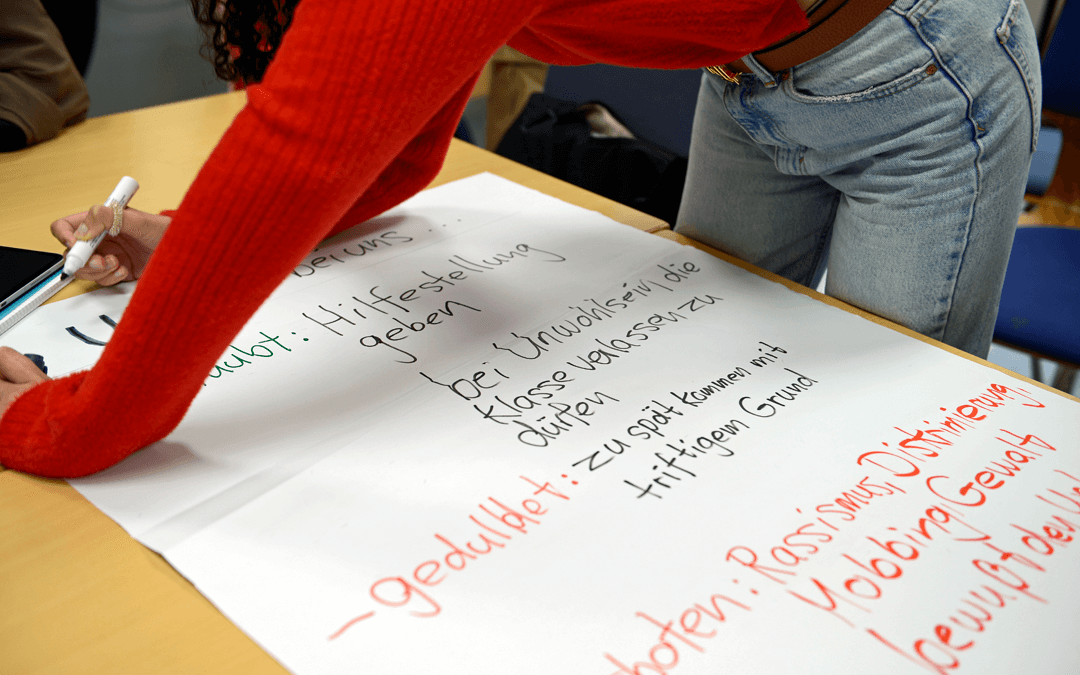 bei uns ..
aubt: Hilfestellung
geben
bei Unwohlsein die
Klasse verlassen zu
dürfen
- geduldet: zu spät kommen mit
triftigem Grund
boten: Rassismus, Diskrimierung,
Mobbing Gewalt
bewußt den